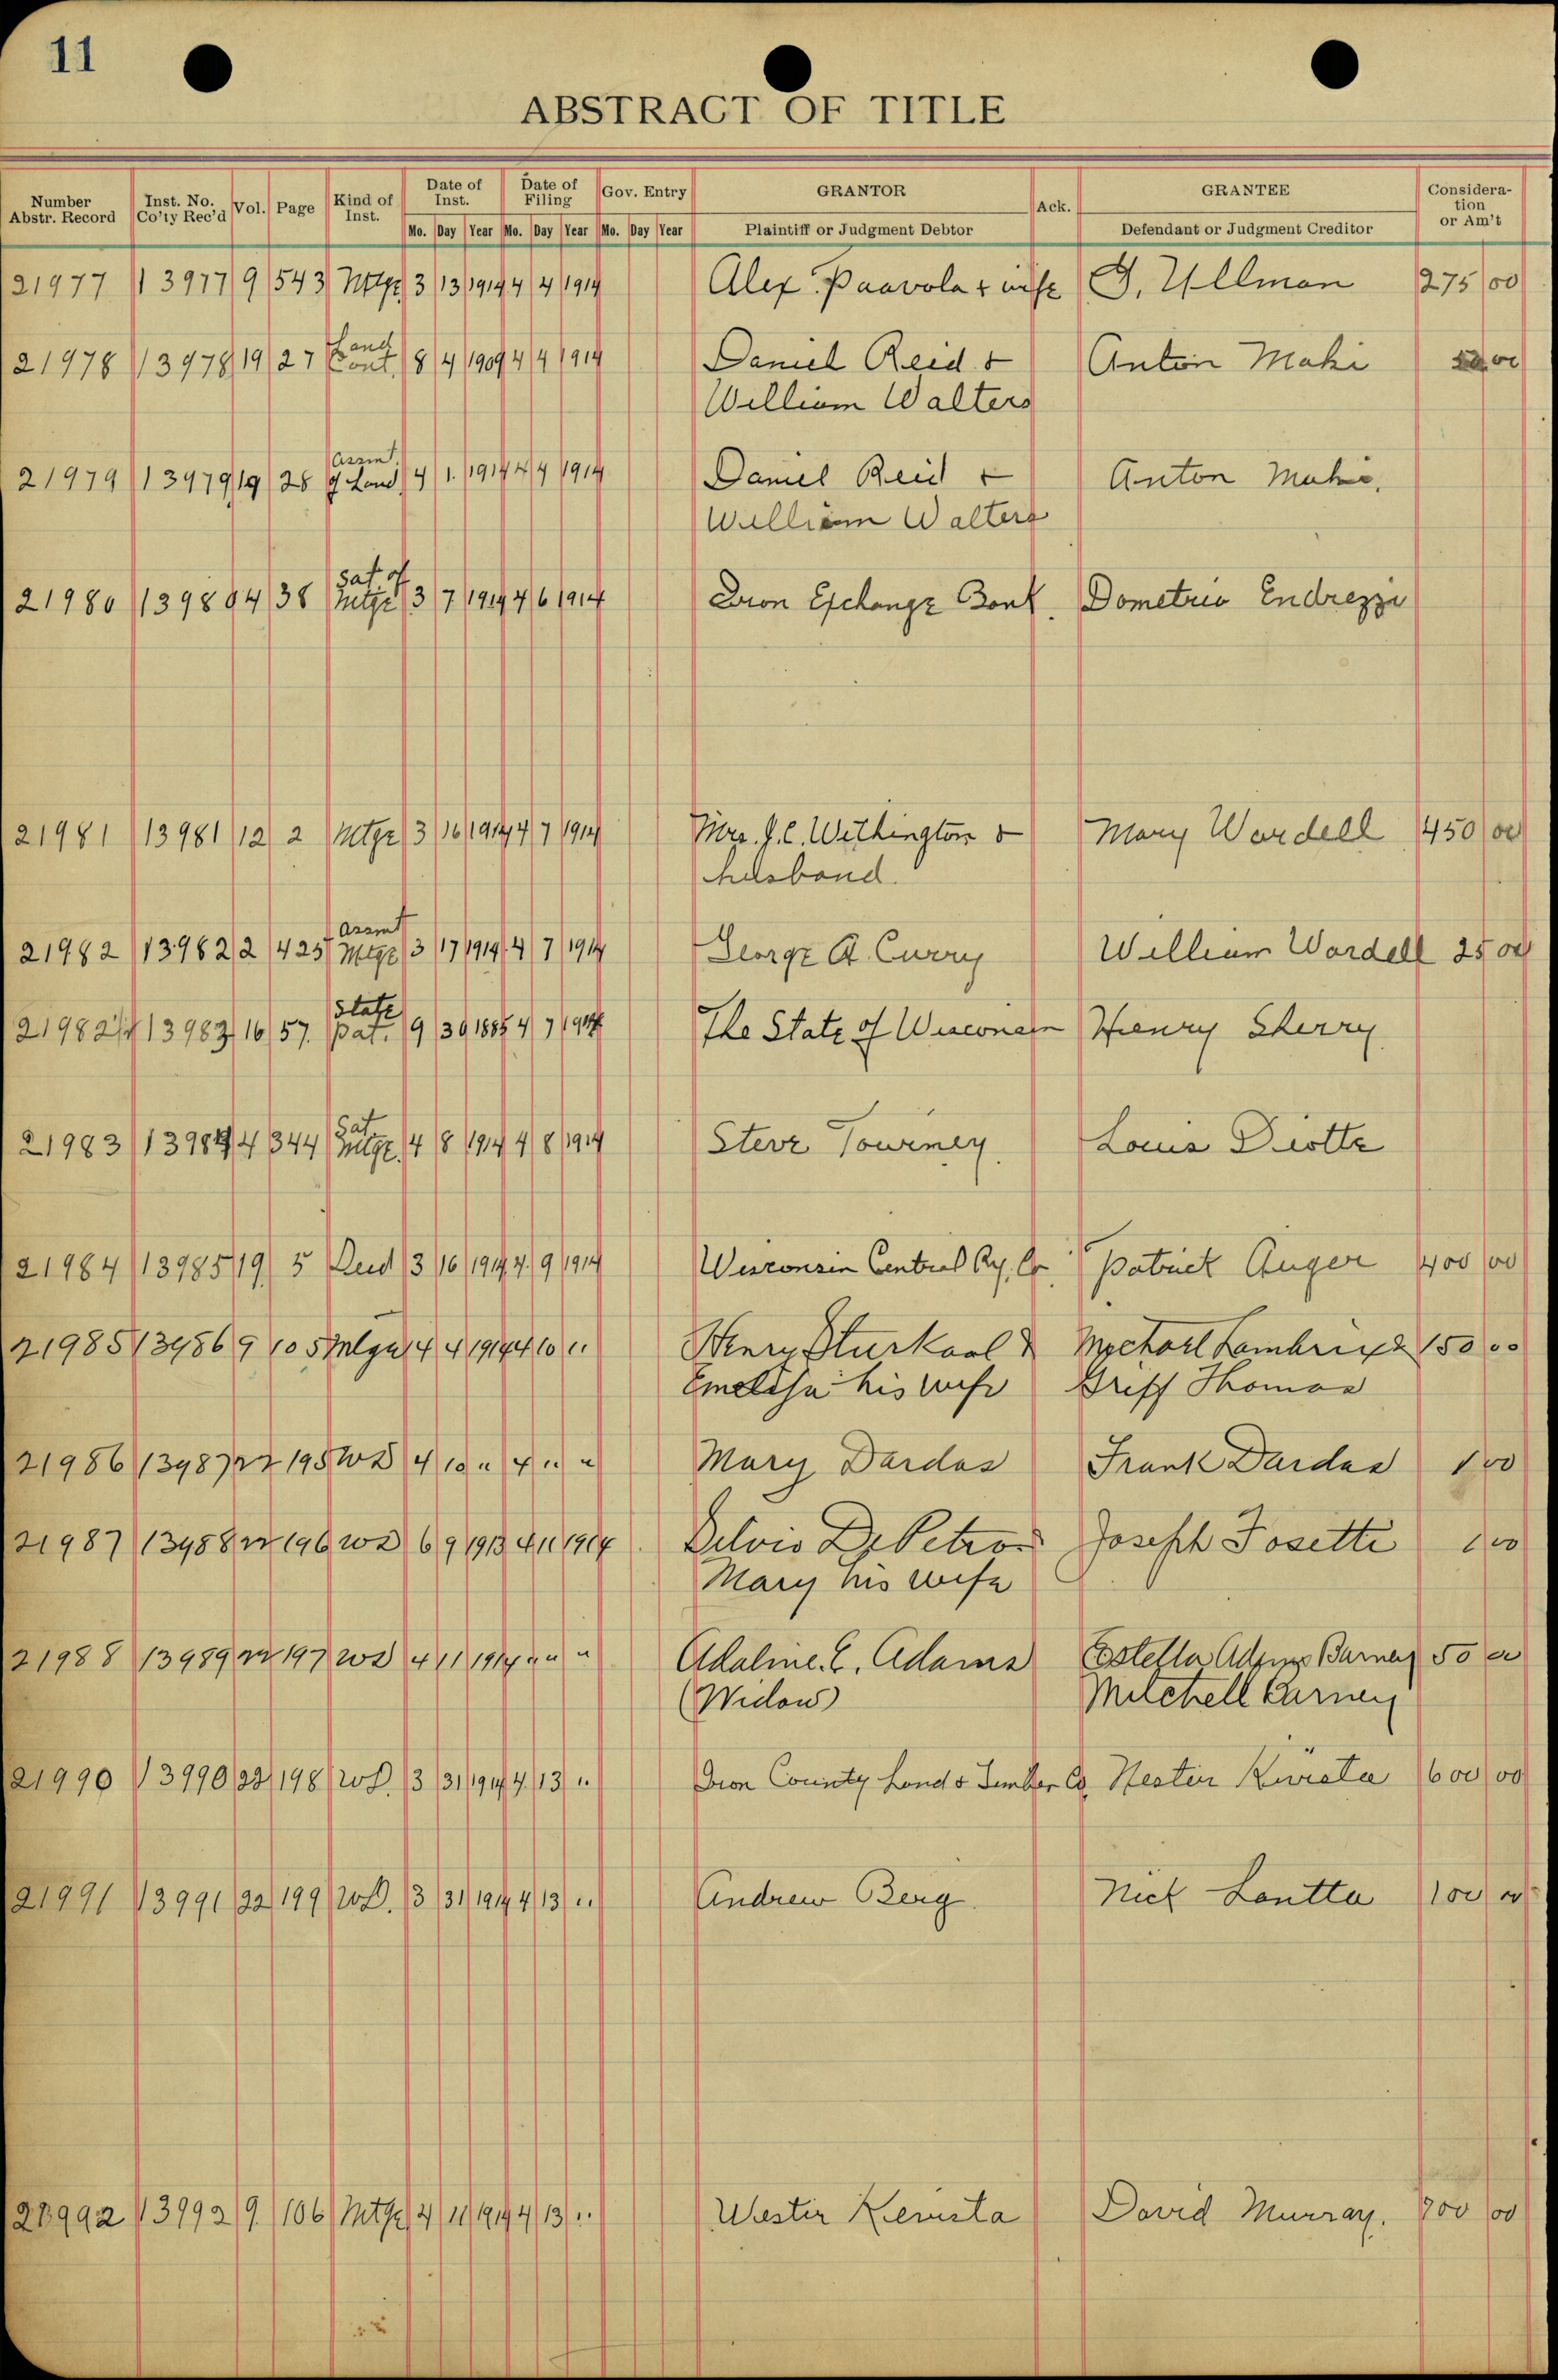 11
ABSTRACT OF TITLE
Number Abstr. Record | Inst. No. Co'ty Rec'd | Vol. | Page | Kind of Inst. | Date of Inst. | Date of Filing | Gov. Entry | GRANTOR | Ack. | GRANTEE | Consideration or Am't
Mo. Day Year Mo. Day Year Mo. Day Year | Plaintiff or Judgment Debtor | Defendant or Judgment Creditor
21977 13977 9 543 Mtge 3 13 1914 4 4 1914 Alex Paavola & wife J. Ullman 275 00
Land
21978 13978 19 27 Cont. 8 4 1909 4 4 1914 Daniel Reid & Anton Maki 00
William Walters
Assmt.
21979 13979 19 28 of Land 4 1 1914 4 4 1914 Daniel Reid & Anton Maki.
William Walters
Sat. of
21980 13980 4 38 Mtge 3 7 1914 4 6 1914 Iron Exchange Bank. Dometrio Endrezzi
21981 13981 12 2 Mtge 3 16 1914 4 7 1914 Mrs. J. C. Withington & Mary Wardell 450 00
husband.
Assmt
21982 13982 2 425 Mtge 3 17 1914 4 7 1914 George A. Curry William Wardell 25 00
State
21982½ 13983 16 57. Pat. 9 30 1885 4 7 1914 The State of Wisconsin Henry Sherry
Sat
21983 13984 4 344 Mtge. 4 8 1914 4 8 1914 Steve Tourney. Louis Diotte
21984 13985 19 5 Deed 3 16 1914 4 9 1914 Wisconsin Central Ry. Co. Patrick Auger 400 00
21985 13986 9 105 Mtge 4 4 1914 4 10 " Henry Sturkaol & Michael Lambrix & 150 00
his wife Griff Thomas
21986 13987 22 195 WD 4 10 " 4 " " Mary Dardas Frank Dardas 1 00
21987 13988 22 196 WD 6 9 1913 4 11 1914 Silvio De Petro & Joseph Fosetti 1 00
Mary his wife
21988 13989 22 197 WD 4 11 1914 " " " Adaline. C. Adams Estella Adams Barney 50 00
(Widow) Mitchell Barney
21990 13990 22 198 WD. 3 31 1914 4 13 " Iron County Land & Timber Co. Hester Kivista 600 00
21991 13991 22 199 WD. 3 31 1914 4 13 " Andrew Berg. Nick Lantta 100 00
21992 13992 9 106 Mtge 4 11 1914 4 13 " Wester Kevista David Murray. 700 00